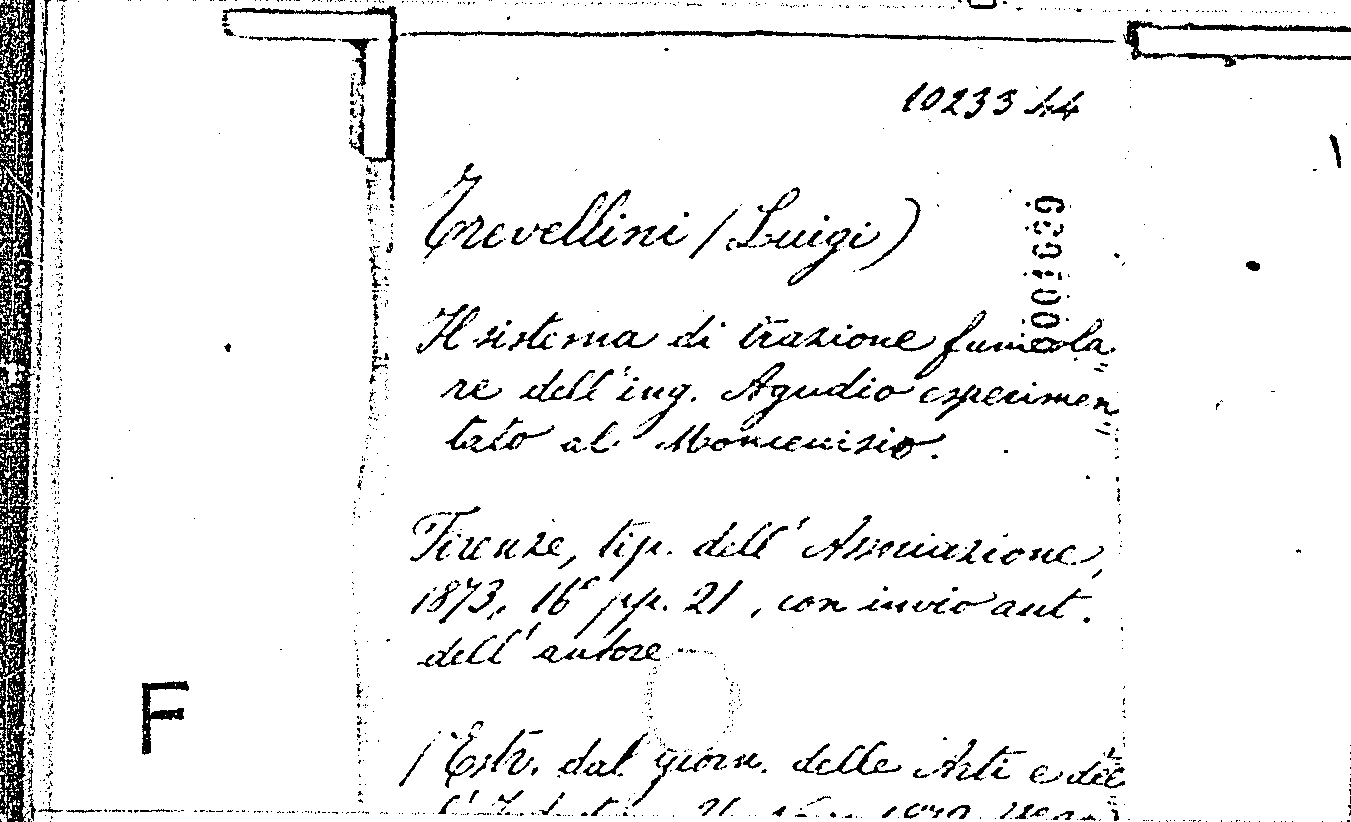 10233 44
Trevellini (Luigi)
001039
Il sistema di trazione funicola
re dell'ing. Agudio esperimen
tato al Moncenisio.
Firenze, tip. dell'Associazione,
1873, 16° pp. 21, con invio aut.
dell'autore
F
(Estr. dal giorn. delle Arti e del